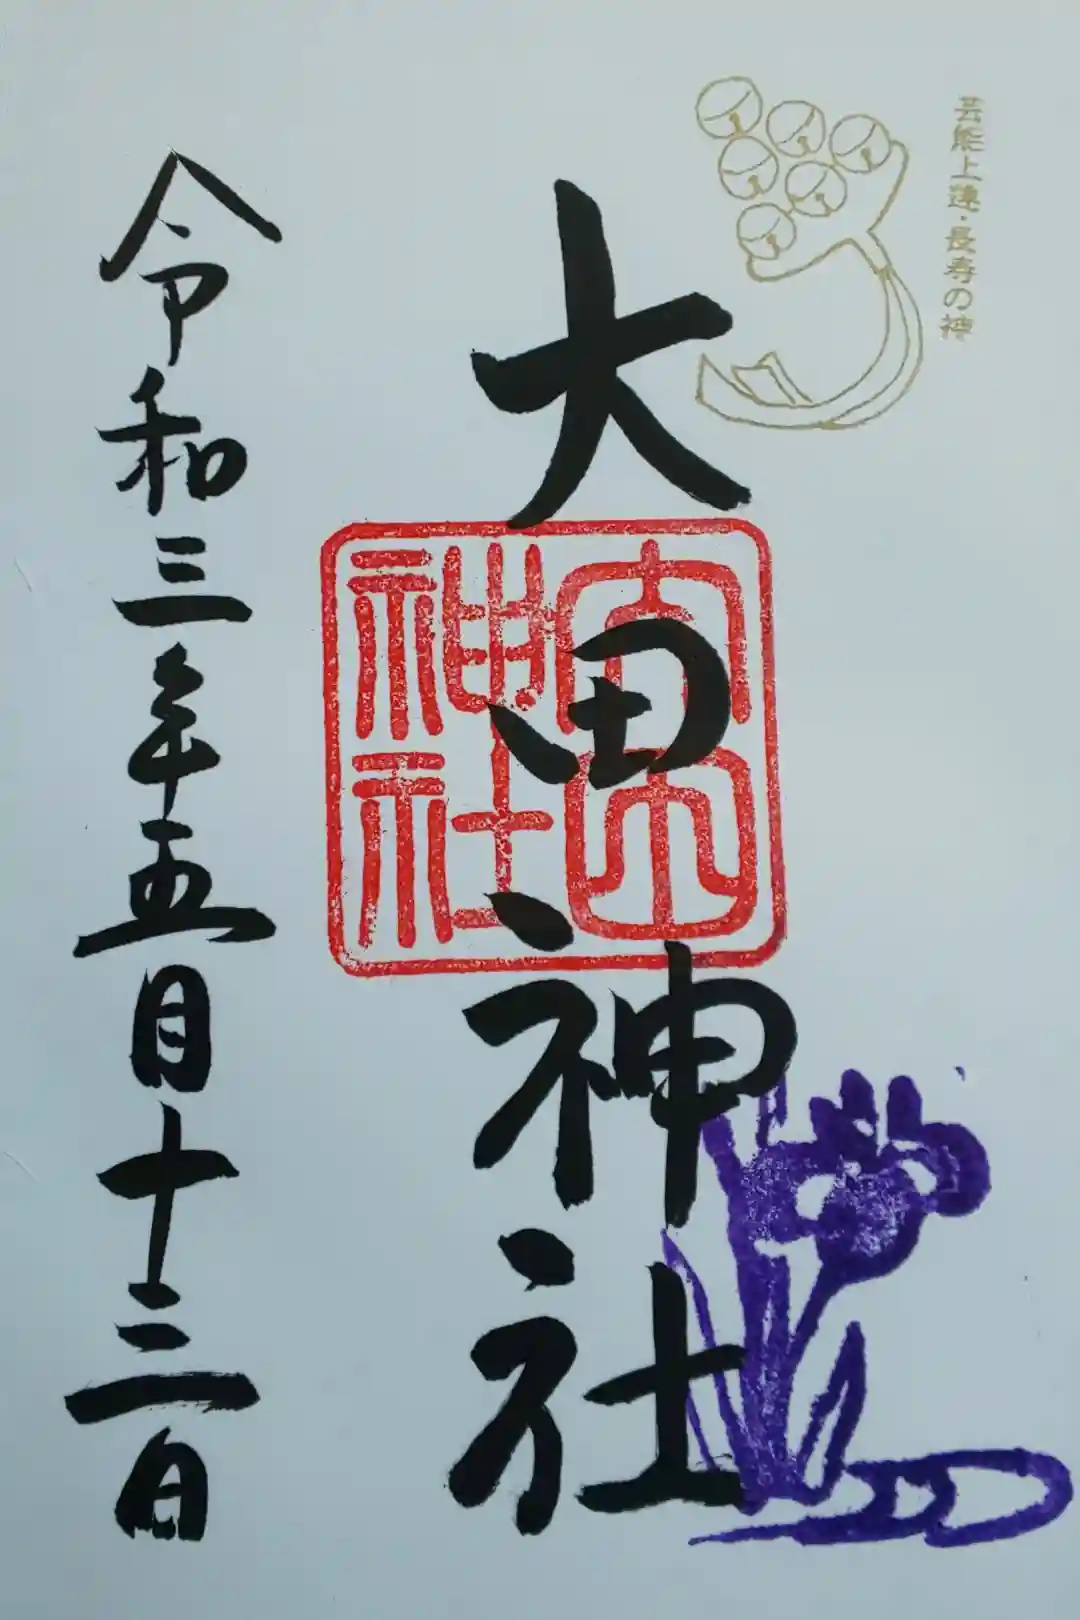 芸能上達・長寿の神
大田神社
大田
神社
令和三年五月十三日